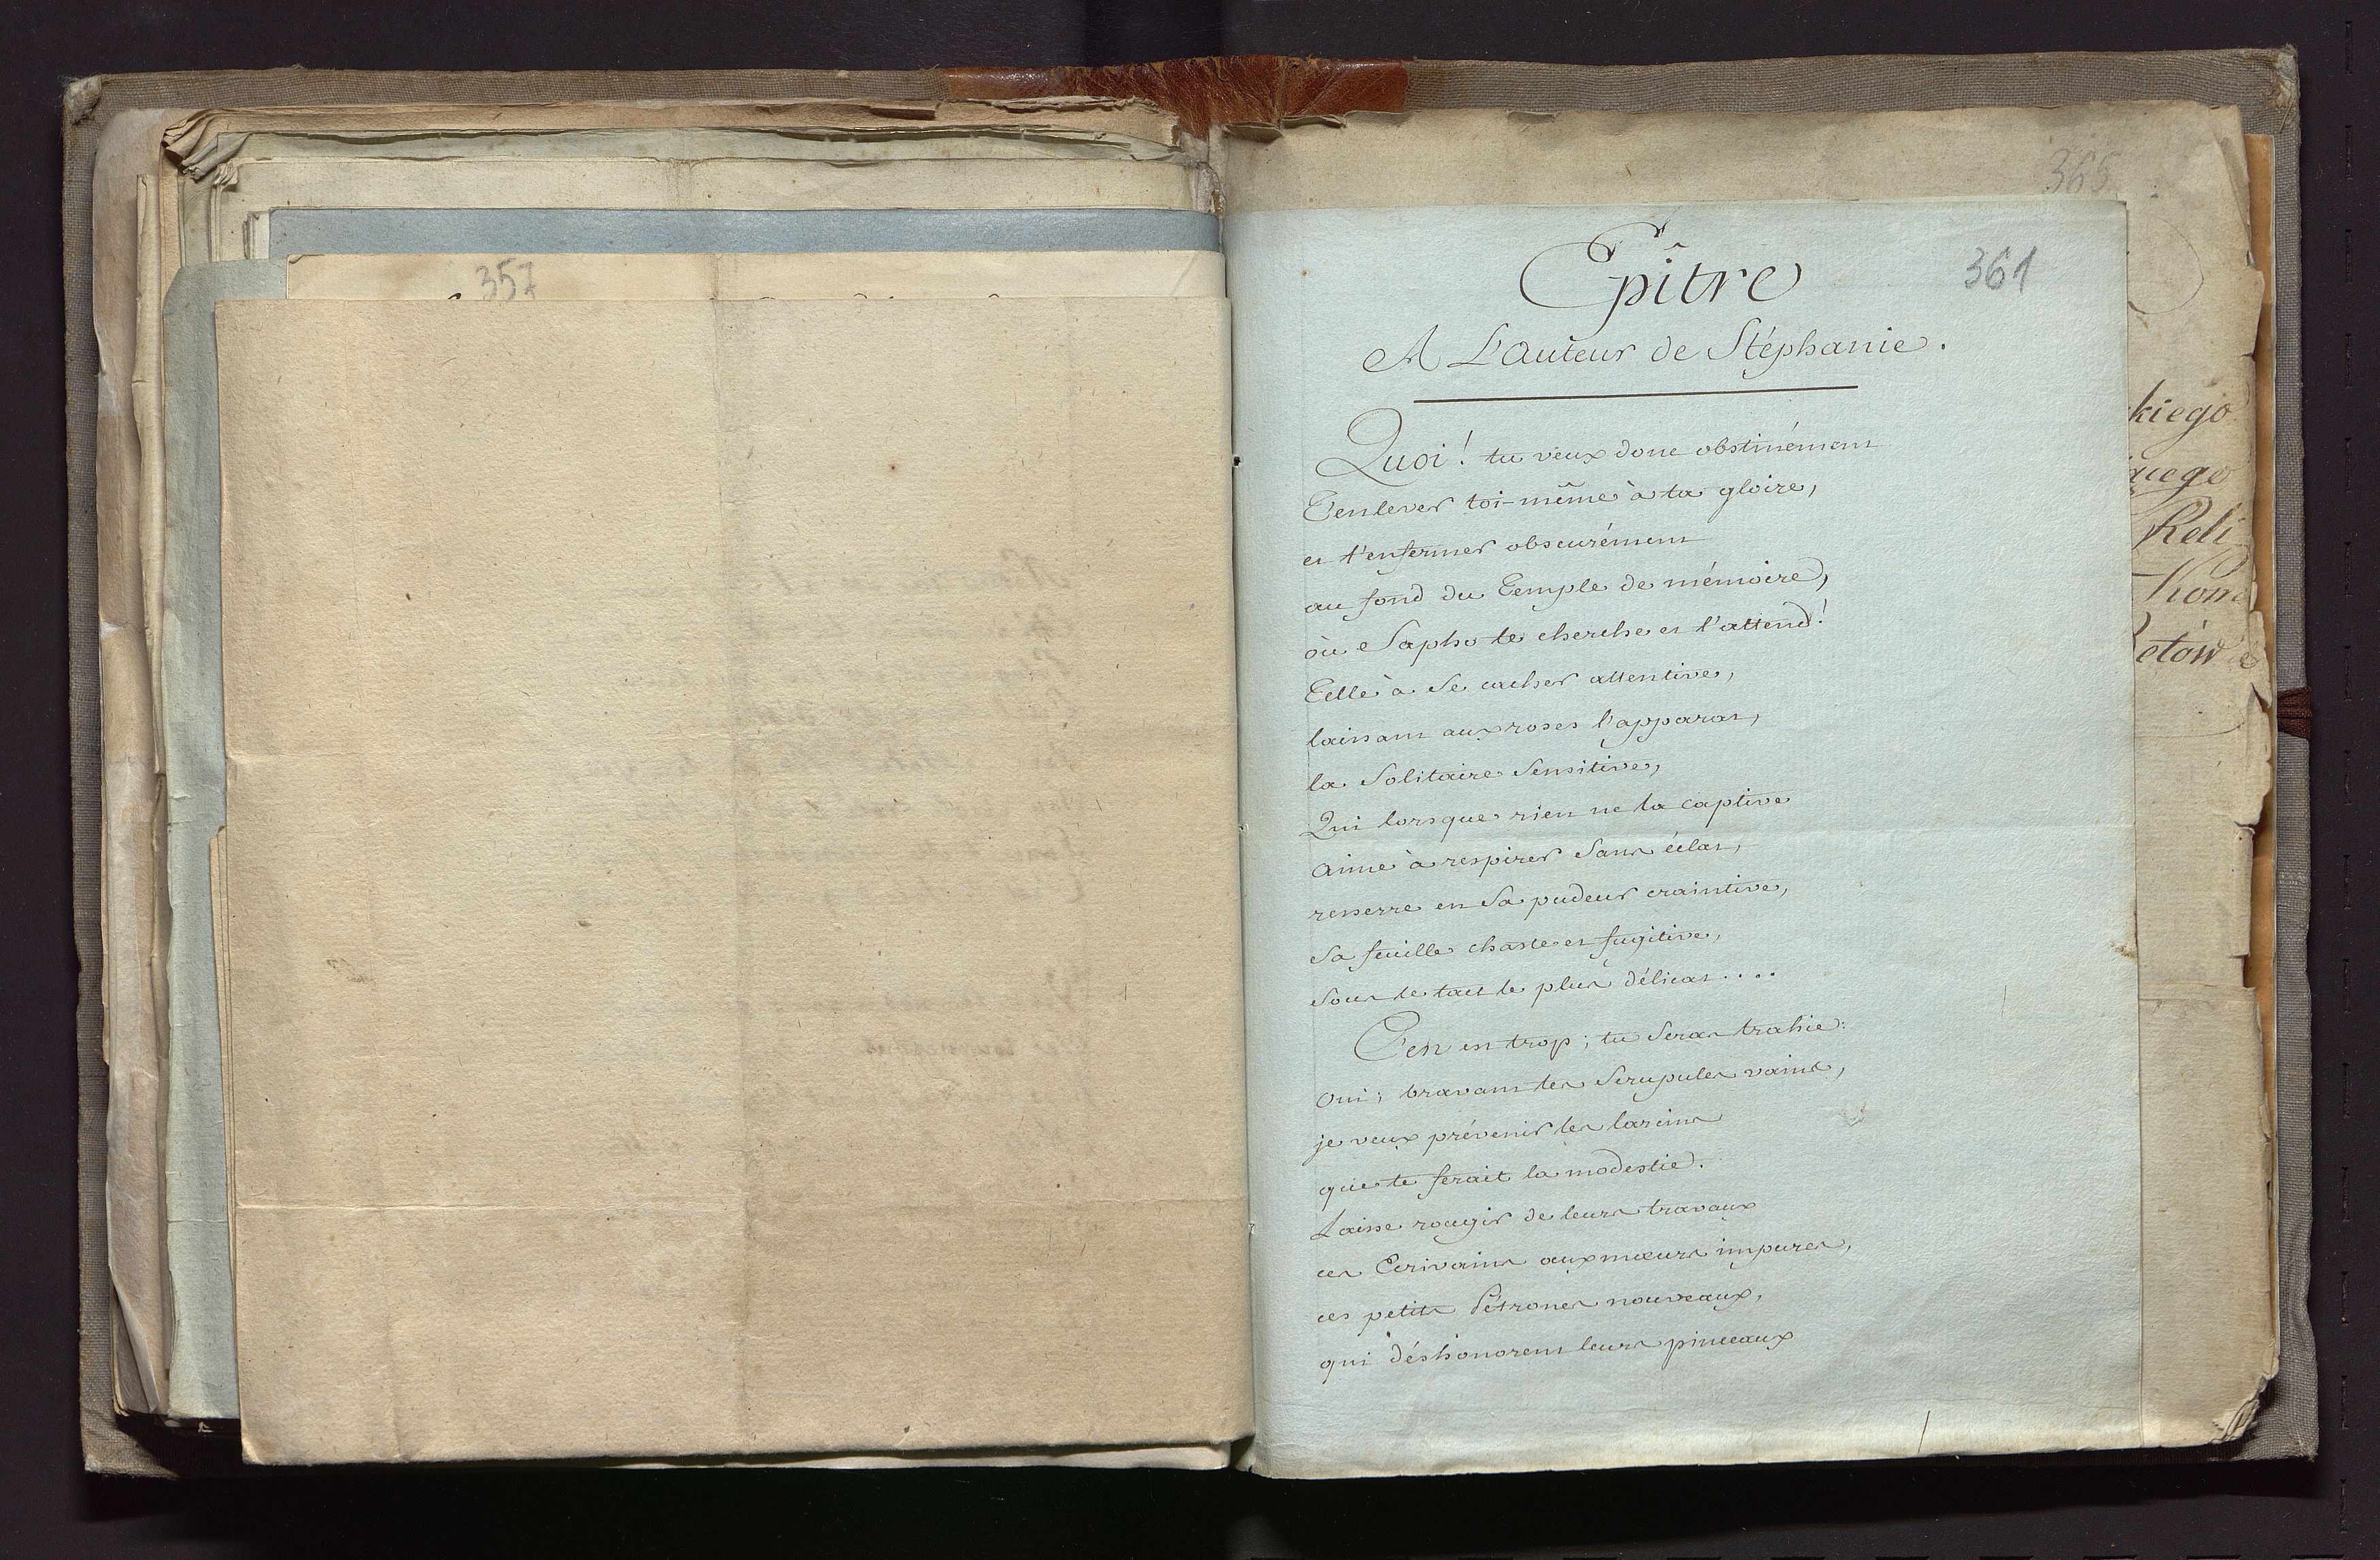 357
365
361
Epître
A L'Auteur de Stéphanie.
Quoi! tu veux donc obstinément
T'enlever toi-même à ta gloire,
et t'enfermer obscurément
au fond du Temple de mémoire,
où Sapho te cherche et t'attend!
Telle à se cacher attentive,
laissant aux roses l'apparat,
la Solitaire Sensitive,
Qui lorsque rien ne la captive
aime à respirer sans éclat,
resserre en sa pudeur craintive,
sa feuille chaste et fugitive,
sous le tact le plus délicat....
C'en est trop; tu seras trahie:
oui; bravant tes scrupules vains,
je veux prévenir les larcins
que te ferait la modestie.
Laisse rougir de leurs travaux
ces Ecrivains aux mœurs impures,
ces petits Pétrones nouveaux,
qui déshonorent leurs pinceaux
kiego
Reli
Kom